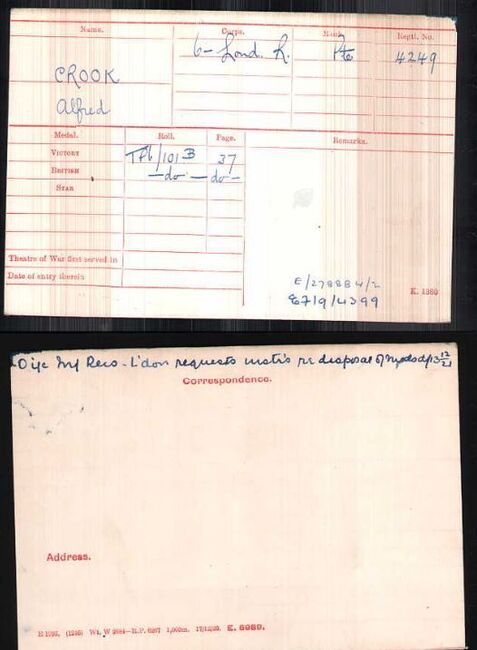 Name. Corps. Rank. Regtl. No.
CROOK 6- Lond. R. Pte 4249
Alfred
Medal. Roll. Page. Remarks.
VICTORY TP6/101 B 37
BRITISH -do- -do-
STAR
Theatre of War first served in
Date of entry therein
E/27888 4/2
E7/9/4399
K. 1380
O i/c Inf Recs - L'don requests instns re disposal of medals d/13 12/21
Correspondence.
Address.
(1246) Wt. W 1,000m. 17/12/20. E. 6989.